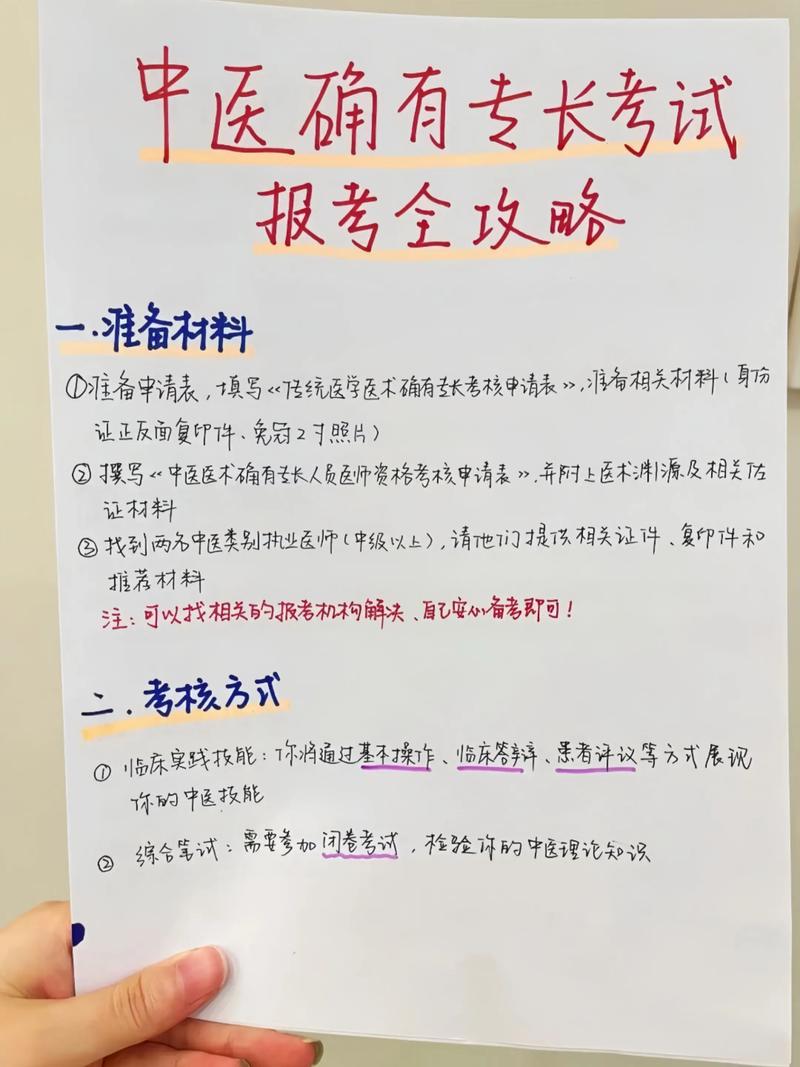 中医确有专长考试
报考全攻略
一.准备材料
①准备申请表,填写《传统医学医术确有专长考核申请表》,准备相关材料(身份
证正反面复印件、免冠2寸照片)
② 撰写《中医医术确有专长人员医师资格考核申请表》,并附上医术渊源及相关佐
证材料
③ 找到两名中医类别执业医师(中级以上),请他们提供相关证件、复印件和
推荐材料
注:可以找相关的报考机构解决、自己安心备考即可!
二.考核方式
① 临床实践技能:你将通过基本操作、临床答辩、患者评议等方式展现
你的中医技能
② 综合笔试:需要参加闭卷考试,检验你的中医理论知识